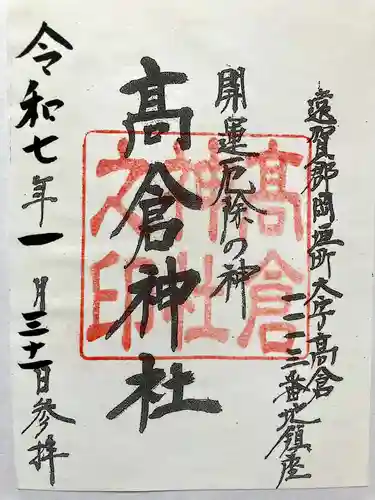 遠賀郡岡垣町大字高倉
一一一三番地鎮座
開運厄除の神
髙倉神社
髙倉神社之印
令和七年一月三十一日参拝